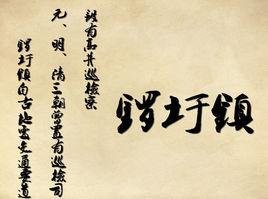 锣圩鎮
設有高井巡檢寨
元、明、清三朝曾置有巡檢司
锣圩鎮自古地處交通要道